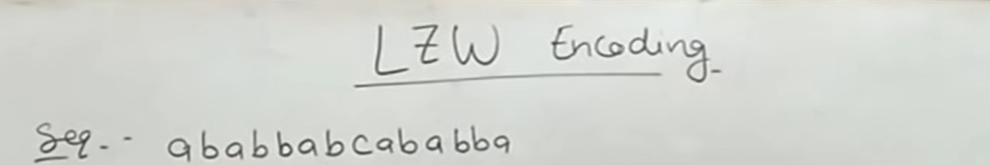 LZW Encoding
Seq. - ababbabcababba